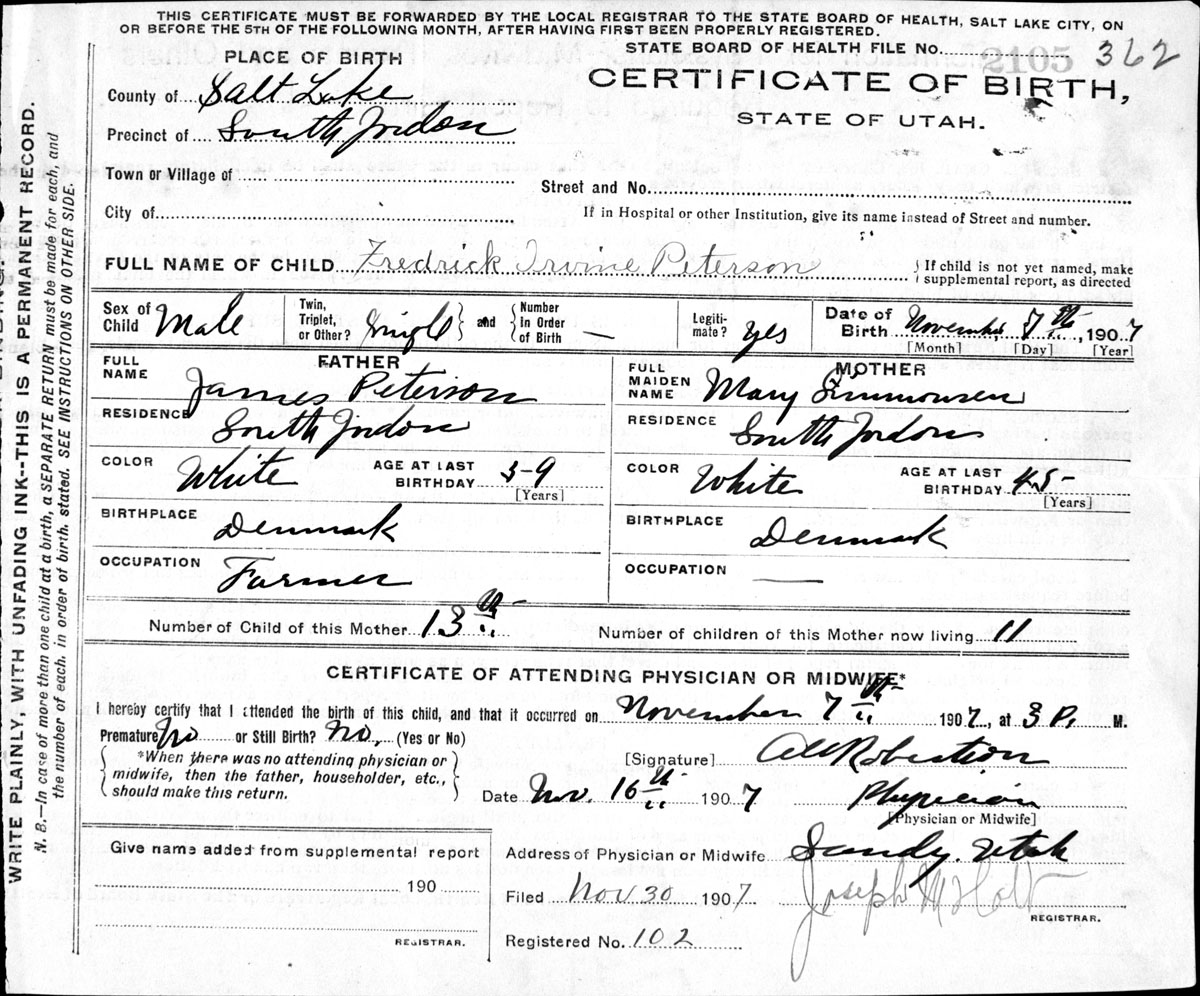 THIS CERTIFICATE MUST BE FORWARDED BY THE LOCAL REGISTRAR TO THE STATE BOARD OF HEALTH, SALT LAKE CITY, ON
OR BEFORE THE 5TH OF THE FOLLOWING MONTH, AFTER HAVING FIRST BEEN PROPERLY REGISTERED.
STATE BOARD OF HEALTH FILE No. 2105 362
PLACE OF BIRTH
CERTIFICATE OF BIRTH,
STATE OF UTAH.
County of Salt Lake
Precinct of South Jordon
Town or Village of
Street and No.
City of
If in Hospital or other Institution, give its name instead of Street and number.
FULL NAME OF CHILD Fredrick Irvine Peterson
If child is not yet named, make
supplemental report, as directed
Sex of Child Male
Twin, Triplet, or Other? Single and Number in Order of Birth —
Legiti-mate? Yes
Date of Birth November 7th, 1907
[Month] [Day] [Year]
FATHER
FULL NAME James Peterson
RESIDENCE South Jordon
COLOR White AGE AT LAST BIRTHDAY 59
[Years]
BIRTHPLACE Denmark
OCCUPATION Farmer
MOTHER
FULL MAIDEN NAME Mary Simmonsen
RESIDENCE South Jordon
COLOR White AGE AT LAST BIRTHDAY 45
[Years]
BIRTHPLACE Denmark
OCCUPATION —
Number of Child of this Mother 13th
Number of children of this Mother now living 11
CERTIFICATE OF ATTENDING PHYSICIAN OR MIDWIFE*
I hereby certify that I attended the birth of this child, and that it occurred on November 7th 1907, at 3 P. M.
Premature No or Still Birth? No, (Yes or No)
*When there was no attending physician or
midwife, then the father, householder, etc.,
should make this return.
[Signature] Robertson
Date Nov. 16th 1907 Physician
[Physician or Midwife]
Give name added from supplemental report
190
REGISTRAR.
Address of Physician or Midwife Sandy. Utah
Filed Nov 30 1907 Joseph M Holt
REGISTRAR.
Registered No. 102
WRITE PLAINLY, WITH UNFADING INK--THIS IS A PERMANENT RECORD.
N. B.—In case of more than one child at a birth, a SEPARATE RETURN must be made for each, and
the number of each, in order of birth, stated. SEE INSTRUCTIONS ON OTHER SIDE.